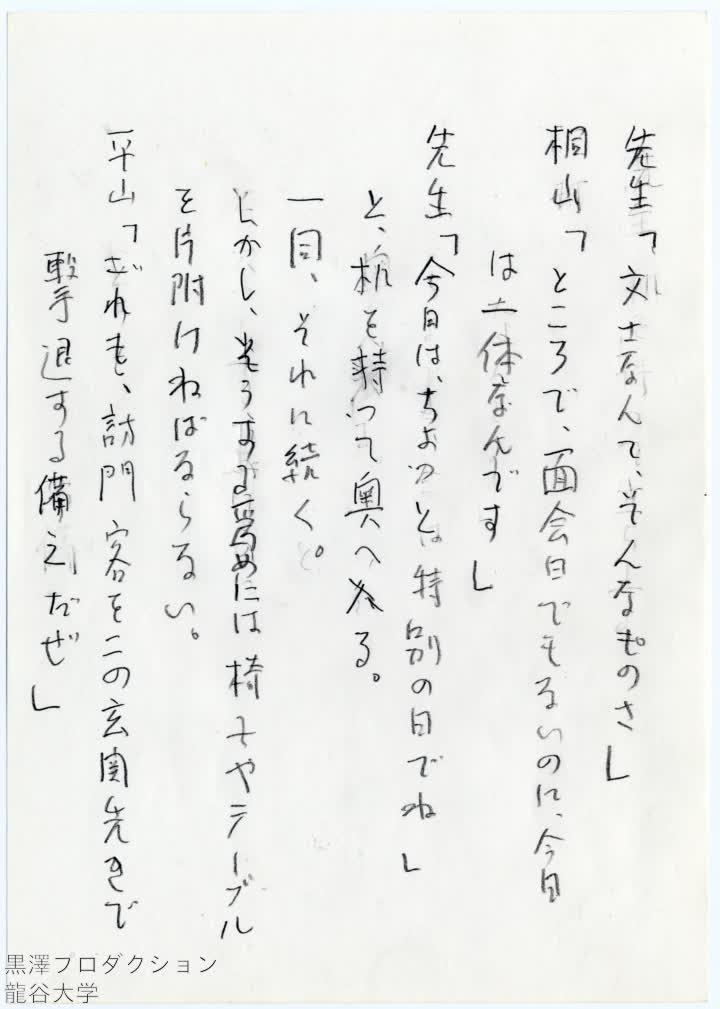 先生「文士なんて、そんなものさ」
桐山「ところで、面会日でもないのに、今日
は一体なんです」
先生「今日は、ちょつとは特別の日でね」
と、机を持つて奥へ入る。
一同、それに続く。
しかし、そうする為めには椅子やテーブル
を片附けねばならない。
平山「ざれも、訪門客をこの玄関先きで
撃退する備えだぜ」
黒澤プロダクション
龍谷大学